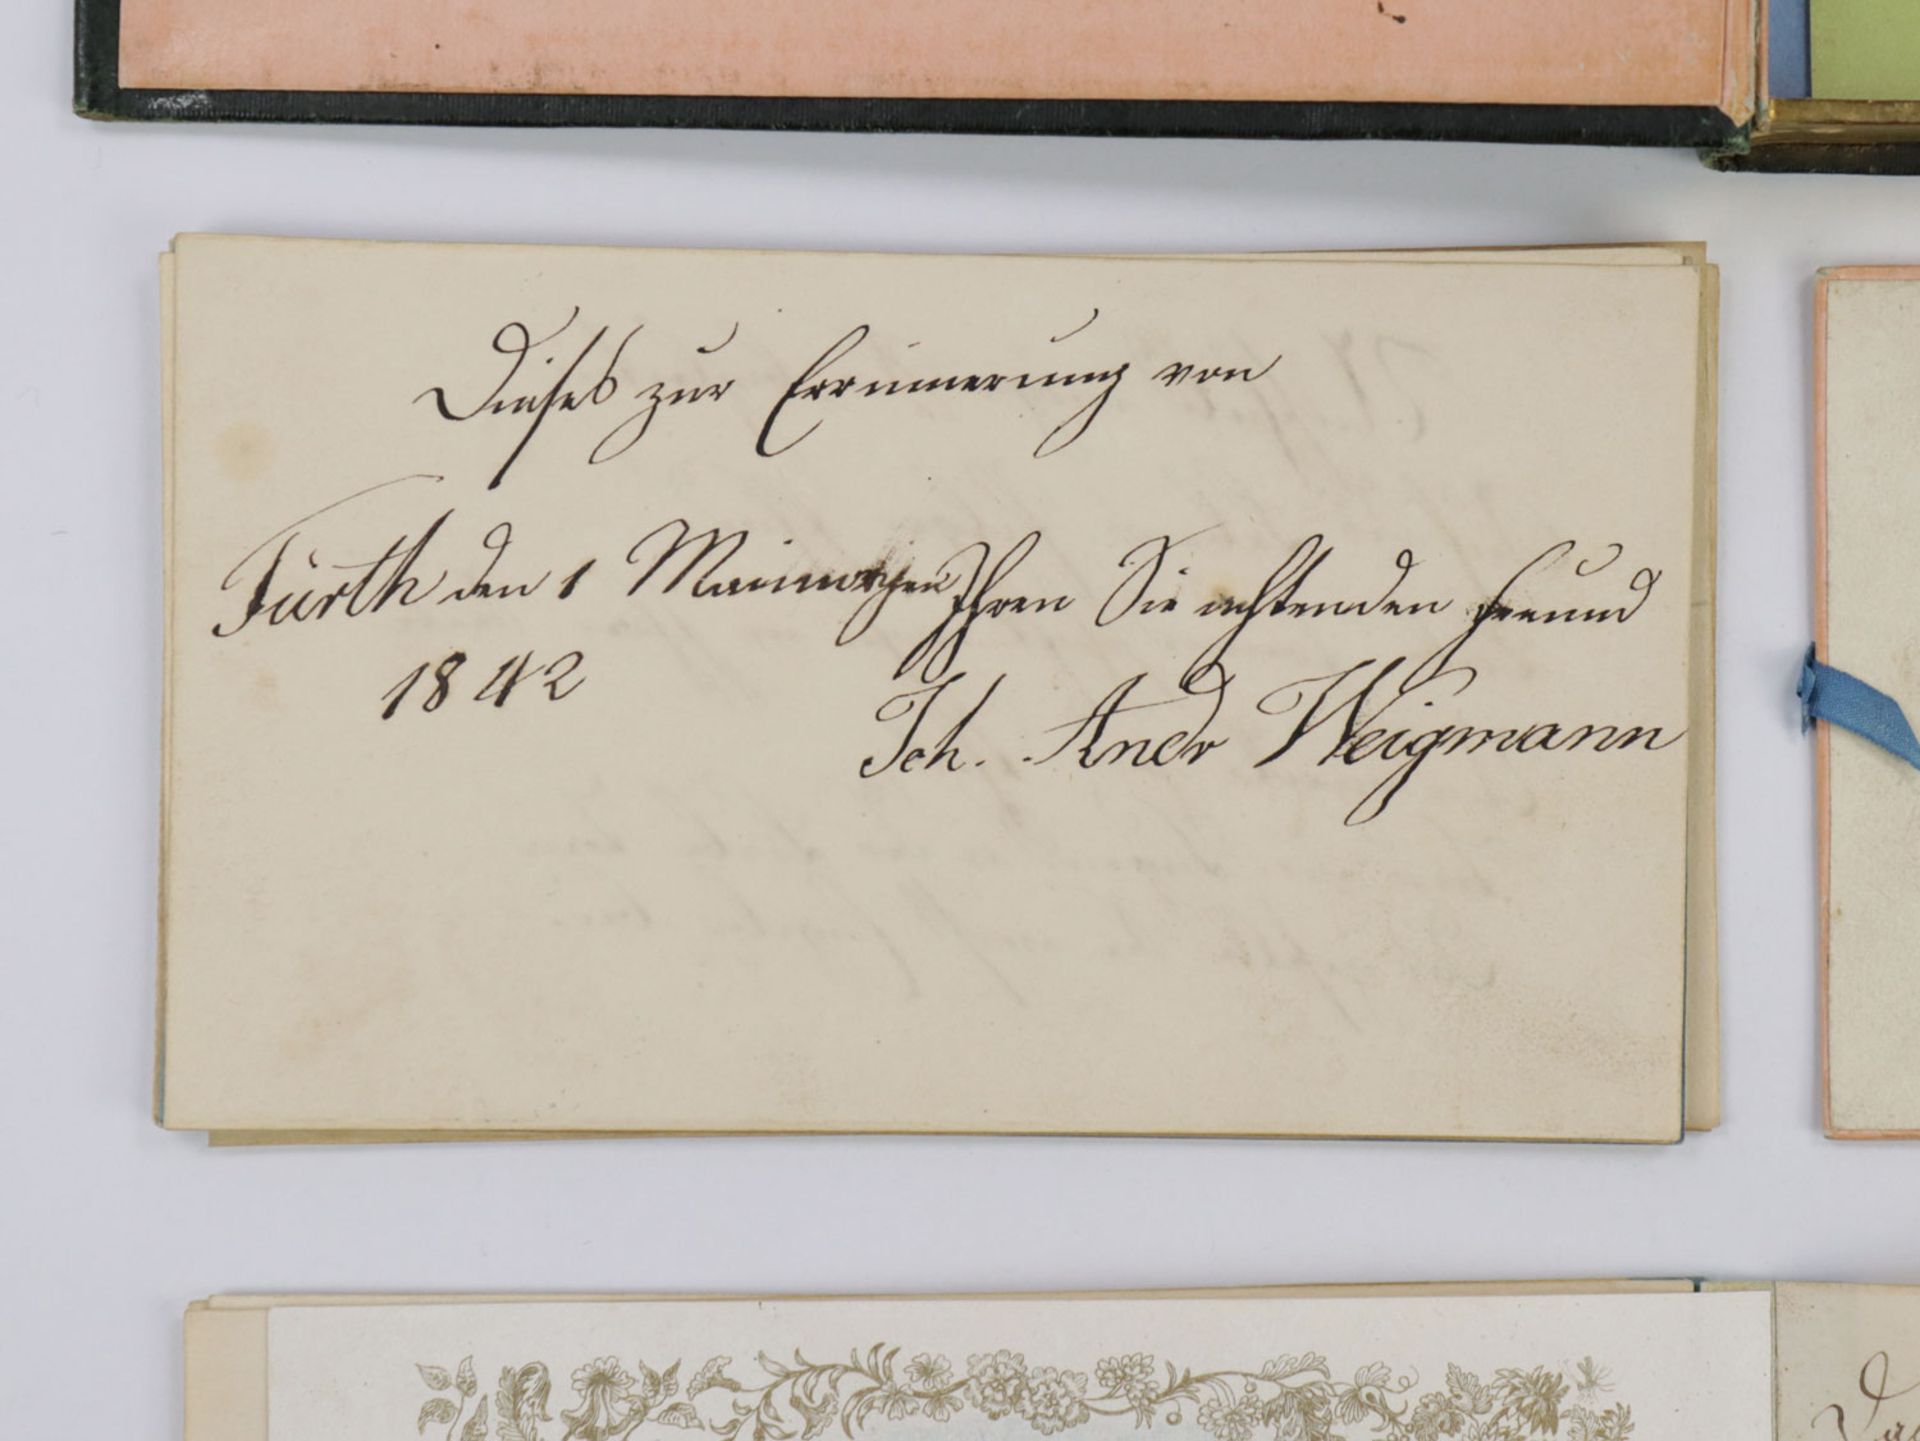 Dieses zur Errinnerung von
Fürth den 1 Maimorgen
1842
Ihren Sie achtenden Freund
Joh. Andr Weigmann